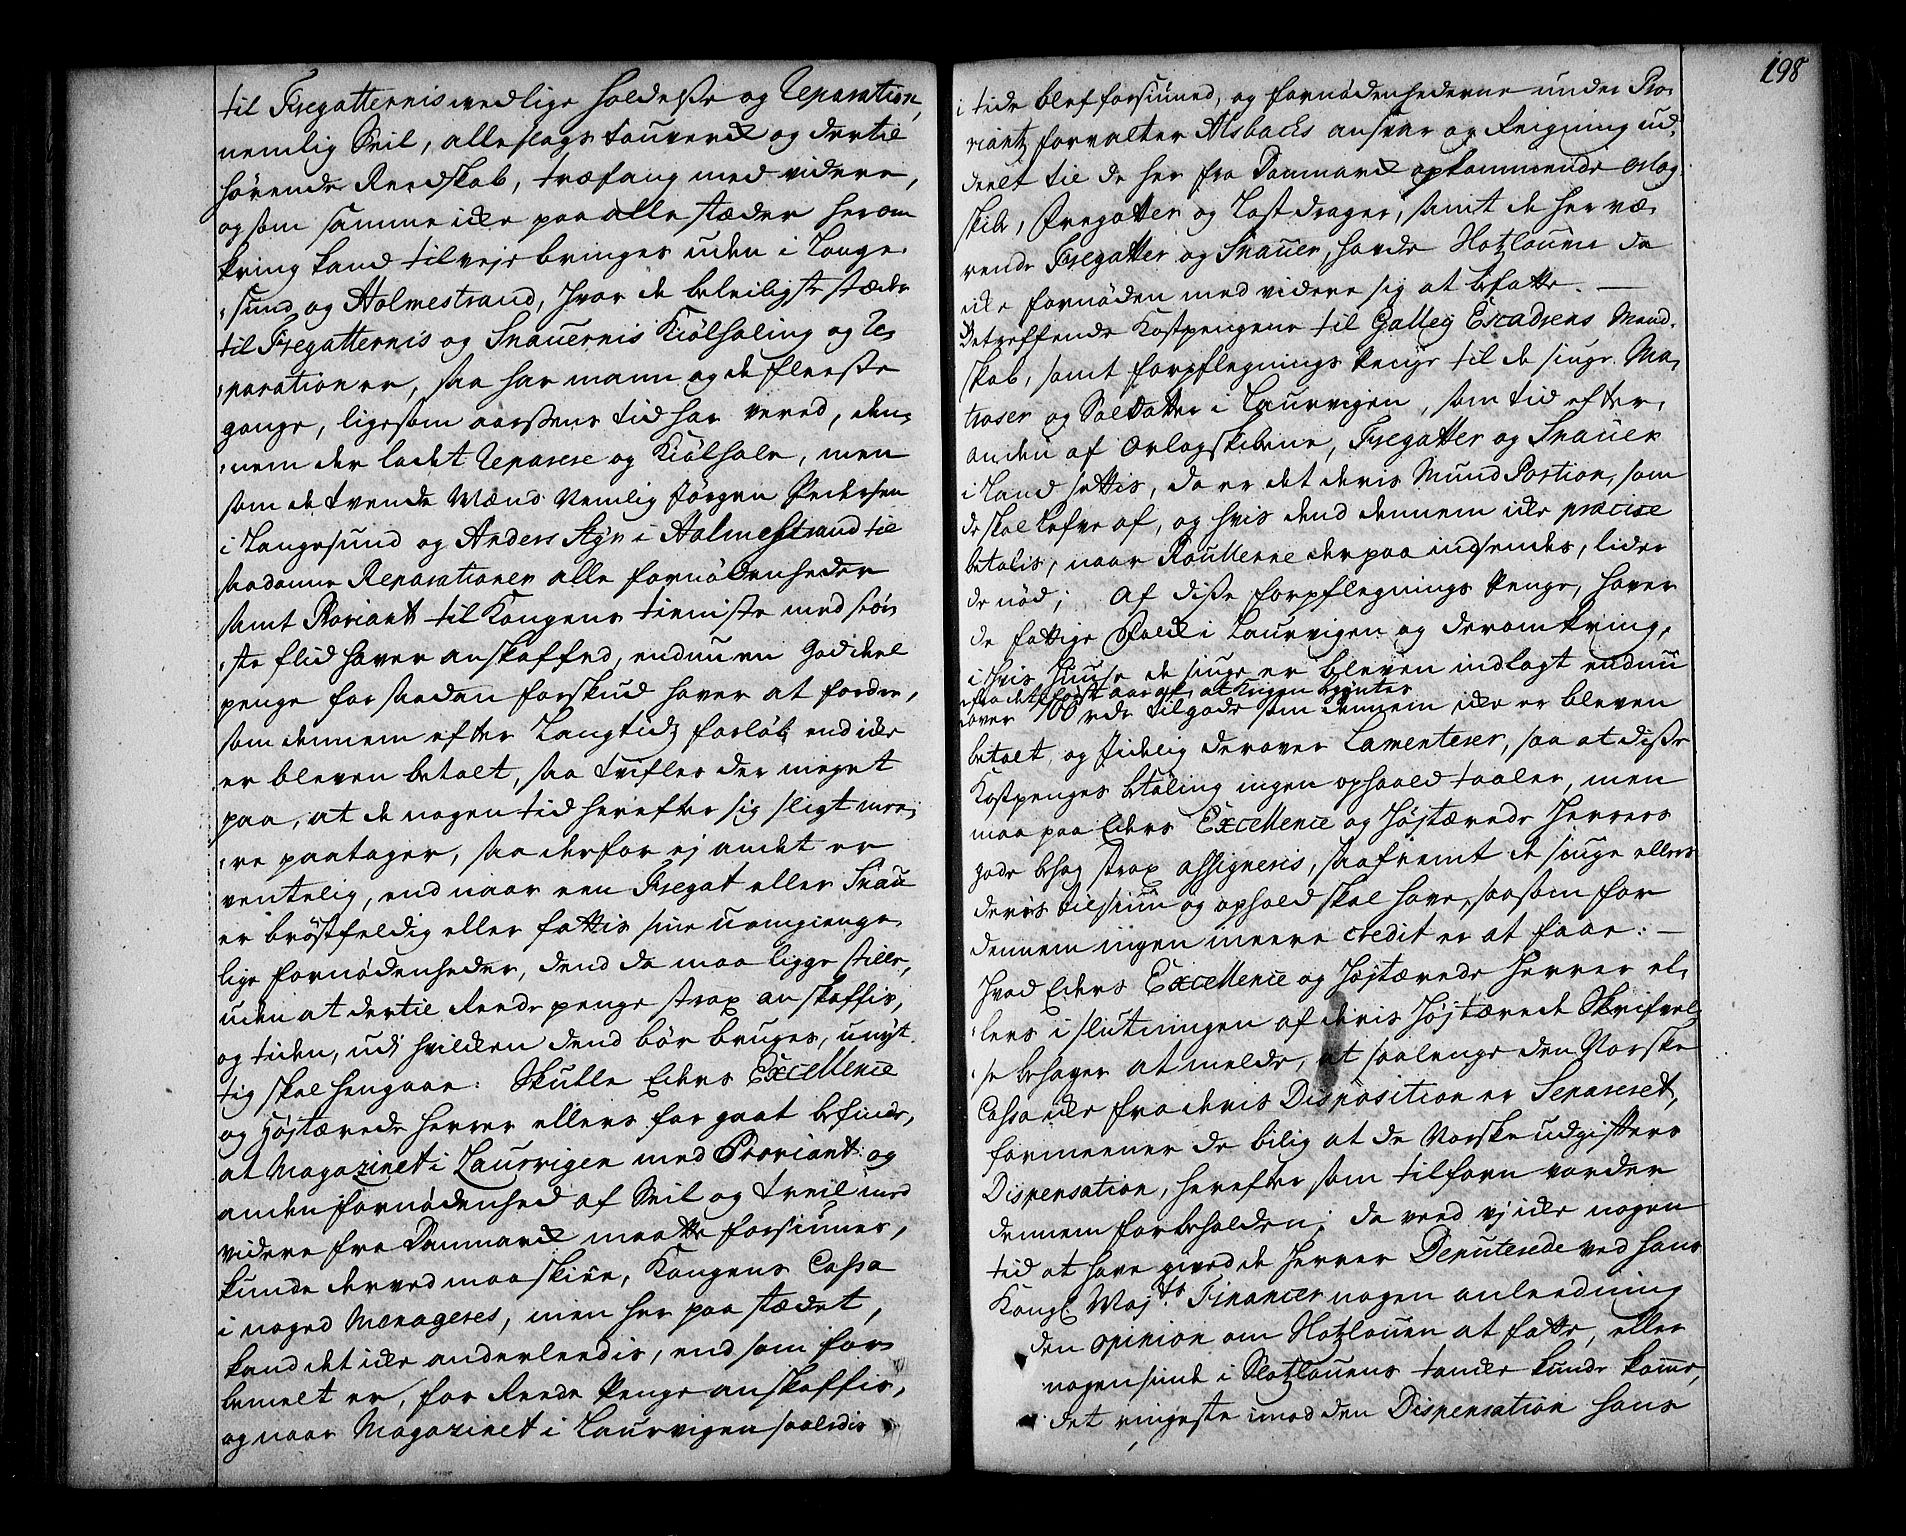 til Fregatternis vedlige holdelse og Reparation,
nemlig Seil, alleslags Touverck og dertil
hørende Reedskab, træfang med videre,
og som samme icke paa alle stæder her om
kring kand tilveje bringes uden i Lange
sund og Holmestrand, hvor de beleiligste stæder
til Fregatternis og Snauernis Kiølhaling og Re
parationer, saa har mann og de fleeste
gange, ligesom aarssens tid har vered, den,
nem der ladet Reparere og Kiølhale, men
som de tvende Mænd Nemlig Jørgen Pedersen
i Langesund og Anders Ayn i Holmestrand til
saadanne Reparationer alle fornødenheder
samt Proviant til Kongens tieniste med stør
ste flid haver anskaffed, endnu en Goddeel
penge for saadan forskud haver at fordre,
som dennem efter Langtidz forløb end icke
er bleven betalt, saa tvifles der meget
paa, at de nogen tid herefter sig sligt mee
re paatager, saa derfor ej andet er
ventelig, end naar een Fregat eller Snau
er brøstfeldig eller fattis sine uomgienge
lige fornødenheder, dend da maa ligge stille,
uden at dertil Reede penge strax anskaffis,
og tiden, udj hvilcken dend bør bruges, unøt
tig skal hengaae: Skulle Eders Excellence
og Højtærede Herrer ellers for gaat befinde,
at Magazinet i Laurvigen med Proviant og
anden fornødenhed af Seil og treil med
videre fra Danmarck maatte forsiunes,
kunde derved maa skee, Kongens Cassa
i noged Menageres, men her paa stædet,
kand det icke anderleedis, end som for
bemelt er, for Reede Penge anskaffis,
og naar Magazinet i Laurvigen saaledis
198
i tide blef forsiuned, og fornødenhederne under Pro
viantz forvalter Alsbachs ansvar og Reigning ud,
deelt til de her fra Danmarck opkommende Orlog
skibe, Fregatter og Lastdrager, samt de her væ
rende Fregatter og Snauer, havde Slotzlouen da
icke fornøden med videre sig at befatte. —
Betreffende Kostpengene til Galley Escadrens Mand,
skab, samt forpflegnings Penge til de siuge Ma
troser og Soldatter i Laurvigen, som tid efter
anden af Orlogskibene, Fregatter og Snauer
i Land settis, da er det deris Mund Portion, som
de skal lefve af, og hvis dend dennem icke præcise
betalis, naar Roullerne der paa indsendes, lider
de nød; Af disse forpflegnings Penge, haver
de fattige Folck i Laurvigen og deromkring,
i hvis Huuse de siuge er bleven indlagt endnu
fra det første aar af, at Krigen begynte
over 700 rdr tilgode som dennem icke er bleven
betalt, og jidelig derover Lamenterer, saa at disse
Kostpenges betaling ingen ophoold taaler, men
maa paa Eders Excellence og Højtærede Herrers
gode behag strax assigneris, saafremt de siuge ellers
deris tilsiun og ophold skal have, saasom for
dennem ingen meere credit er at faae: —
Hvad Eders Excellence og Højtærede Herrer el,
lers i slutningen af deris Højtærede Skrifvel
se behager at melde, at saalenge den Norske
Cassa icke fra deris Disposition er Separeret,
formeener de bilig at de Norske udgifters
Dispensation, herefter som tilforn vorder
dennem forbeholden; da veed vj icke nogen
tid at have gived de Herrer Deputerede ved Hans
Kongl. Majts. Financer nogen anleedning
den opinion om Slotzlouen at fatte, eller
nogensinde i Slotzlouens tancke kunde komme,
det ringeste imod den Dispensation Hans